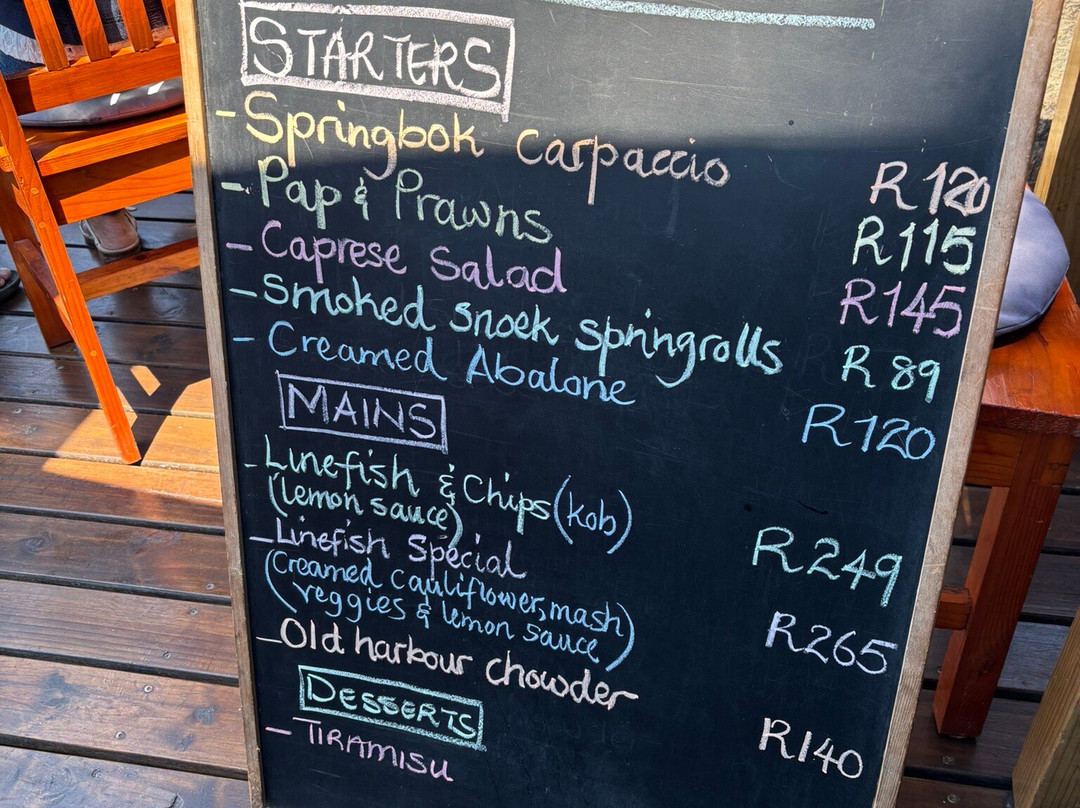 STARTERS
- Springbok Carpaccio R120
- Pap & Prawns R115
- Caprese Salad R145
- Smoked Snoek springrolls R89
- Creamed Abalone R120
MAINS
- Linefish & Chips (kob)
(lemon sauce) R249
- Linefish Special
(Creamed cauliflower, mash
veggies & lemon sauce) R265
- Old harbour chowder R140
DESSERTS
- TIRAMISU